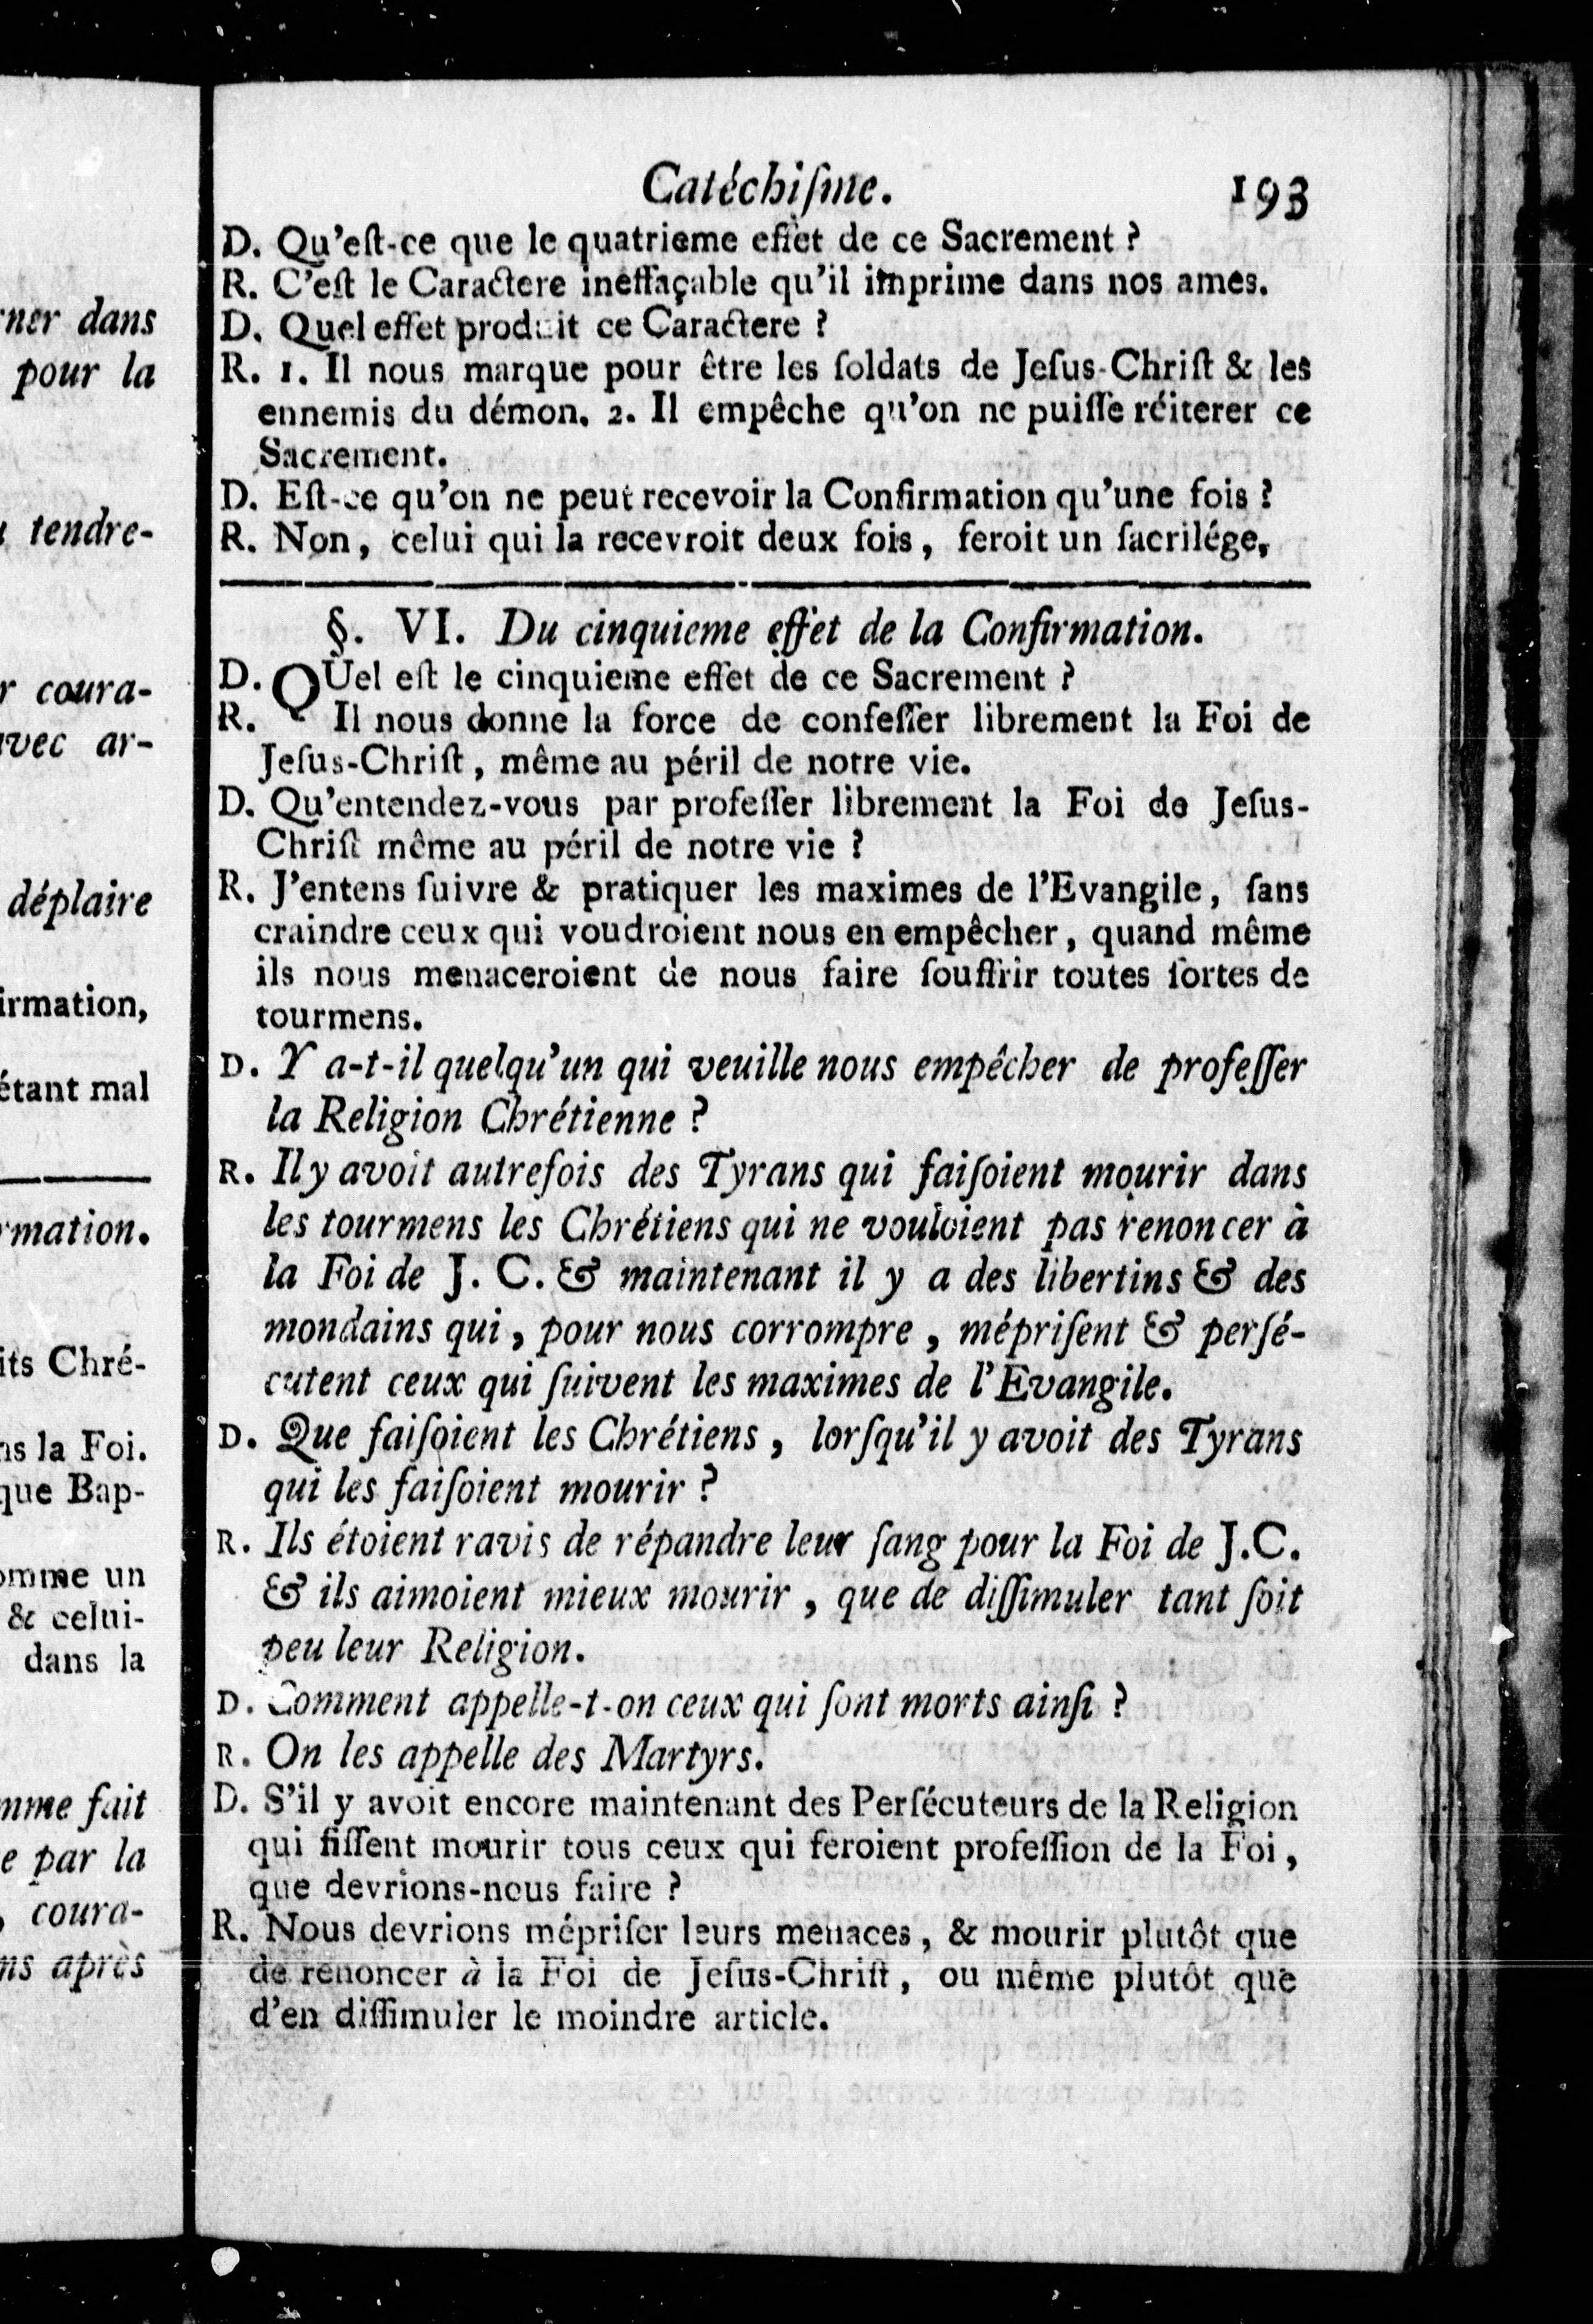 rner dans
pour la
tendre-
r coura-
avec ar-
déplaire
irmation,
étant mal
rmation.
its Chré-
ns la Foi.
que Bap-
omme un
& celui-
dans la
mme fait
e par la
, coura-
ns après
Catéchiſme. 193
D. Qu'eſt-ce que le quatrieme effet de ce Sacrement ?
R. C'eſt le Caractere ineffaçable qu'il imprime dans nos ames.
D. Quel effet produit ce Caractere ?
R. 1. Il nous marque pour être les ſoldats de Jeſus-Chriſt & les
ennemis du démon. 2. Il empêche qu'on ne puiſſe réiterer ce
Sacrement.
D. Eſt-ce qu'on ne peut recevoir la Confirmation qu'une fois ?
R. Non, celui qui la recevroit deux fois, feroit un ſacrilége,
§. VI. Du cinquieme effet de la Confirmation.
D. QUel eſt le cinquieme effet de ce Sacrement ?
R. Il nous donne la force de confeſſer librement la Foi de
Jeſus-Chriſt, même au péril de notre vie.
D. Qu'entendez-vous par profeſſer librement la Foi de Jeſus-
Chriſt même au péril de notre vie ?
R. J'entens ſuivre & pratiquer les maximes de l'Evangile, ſans
craindre ceux qui voudroient nous en empêcher, quand même
ils nous menaceroient de nous faire ſouffrir toutes ſortes de
tourmens.
D. Y a-t-il quelqu'un qui veuille nous empêcher de profeſſer
la Religion Chrétienne ?
R. Il y avoit autrefois des Tyrans qui faiſoient mourir dans
les tourmens les Chrétiens qui ne vouloient pas renoncer à
la Foi de J. C. & maintenant il y a des libertins & des
mondains qui, pour nous corrompre, mépriſent & perſé-
cutent ceux qui ſuivent les maximes de l'Evangile.
D. Que faiſoient les Chrétiens, lorſqu'il y avoit des Tyrans
qui les faiſoient mourir ?
R. Ils étoient ravis de répandre leur ſang pour la Foi de J.C.
& ils aimoient mieux mourir, que de diſſimuler tant ſoit
peu leur Religion.
D. Comment appelle-t-on ceux qui ſont morts ainſi ?
R. On les appelle des Martyrs.
D. S'il y avoit encore maintenant des Perſécuteurs de la Religion
qui fiſſent mourir tous ceux qui feroient profeſſion de la Foi,
que devrions-nous faire ?
R. Nous devrions mépriſer leurs menaces, & mourir plutôt que
de renoncer à la Foi de Jeſus-Chriſt, ou même plutôt que
d'en diſſimuler le moindre article.